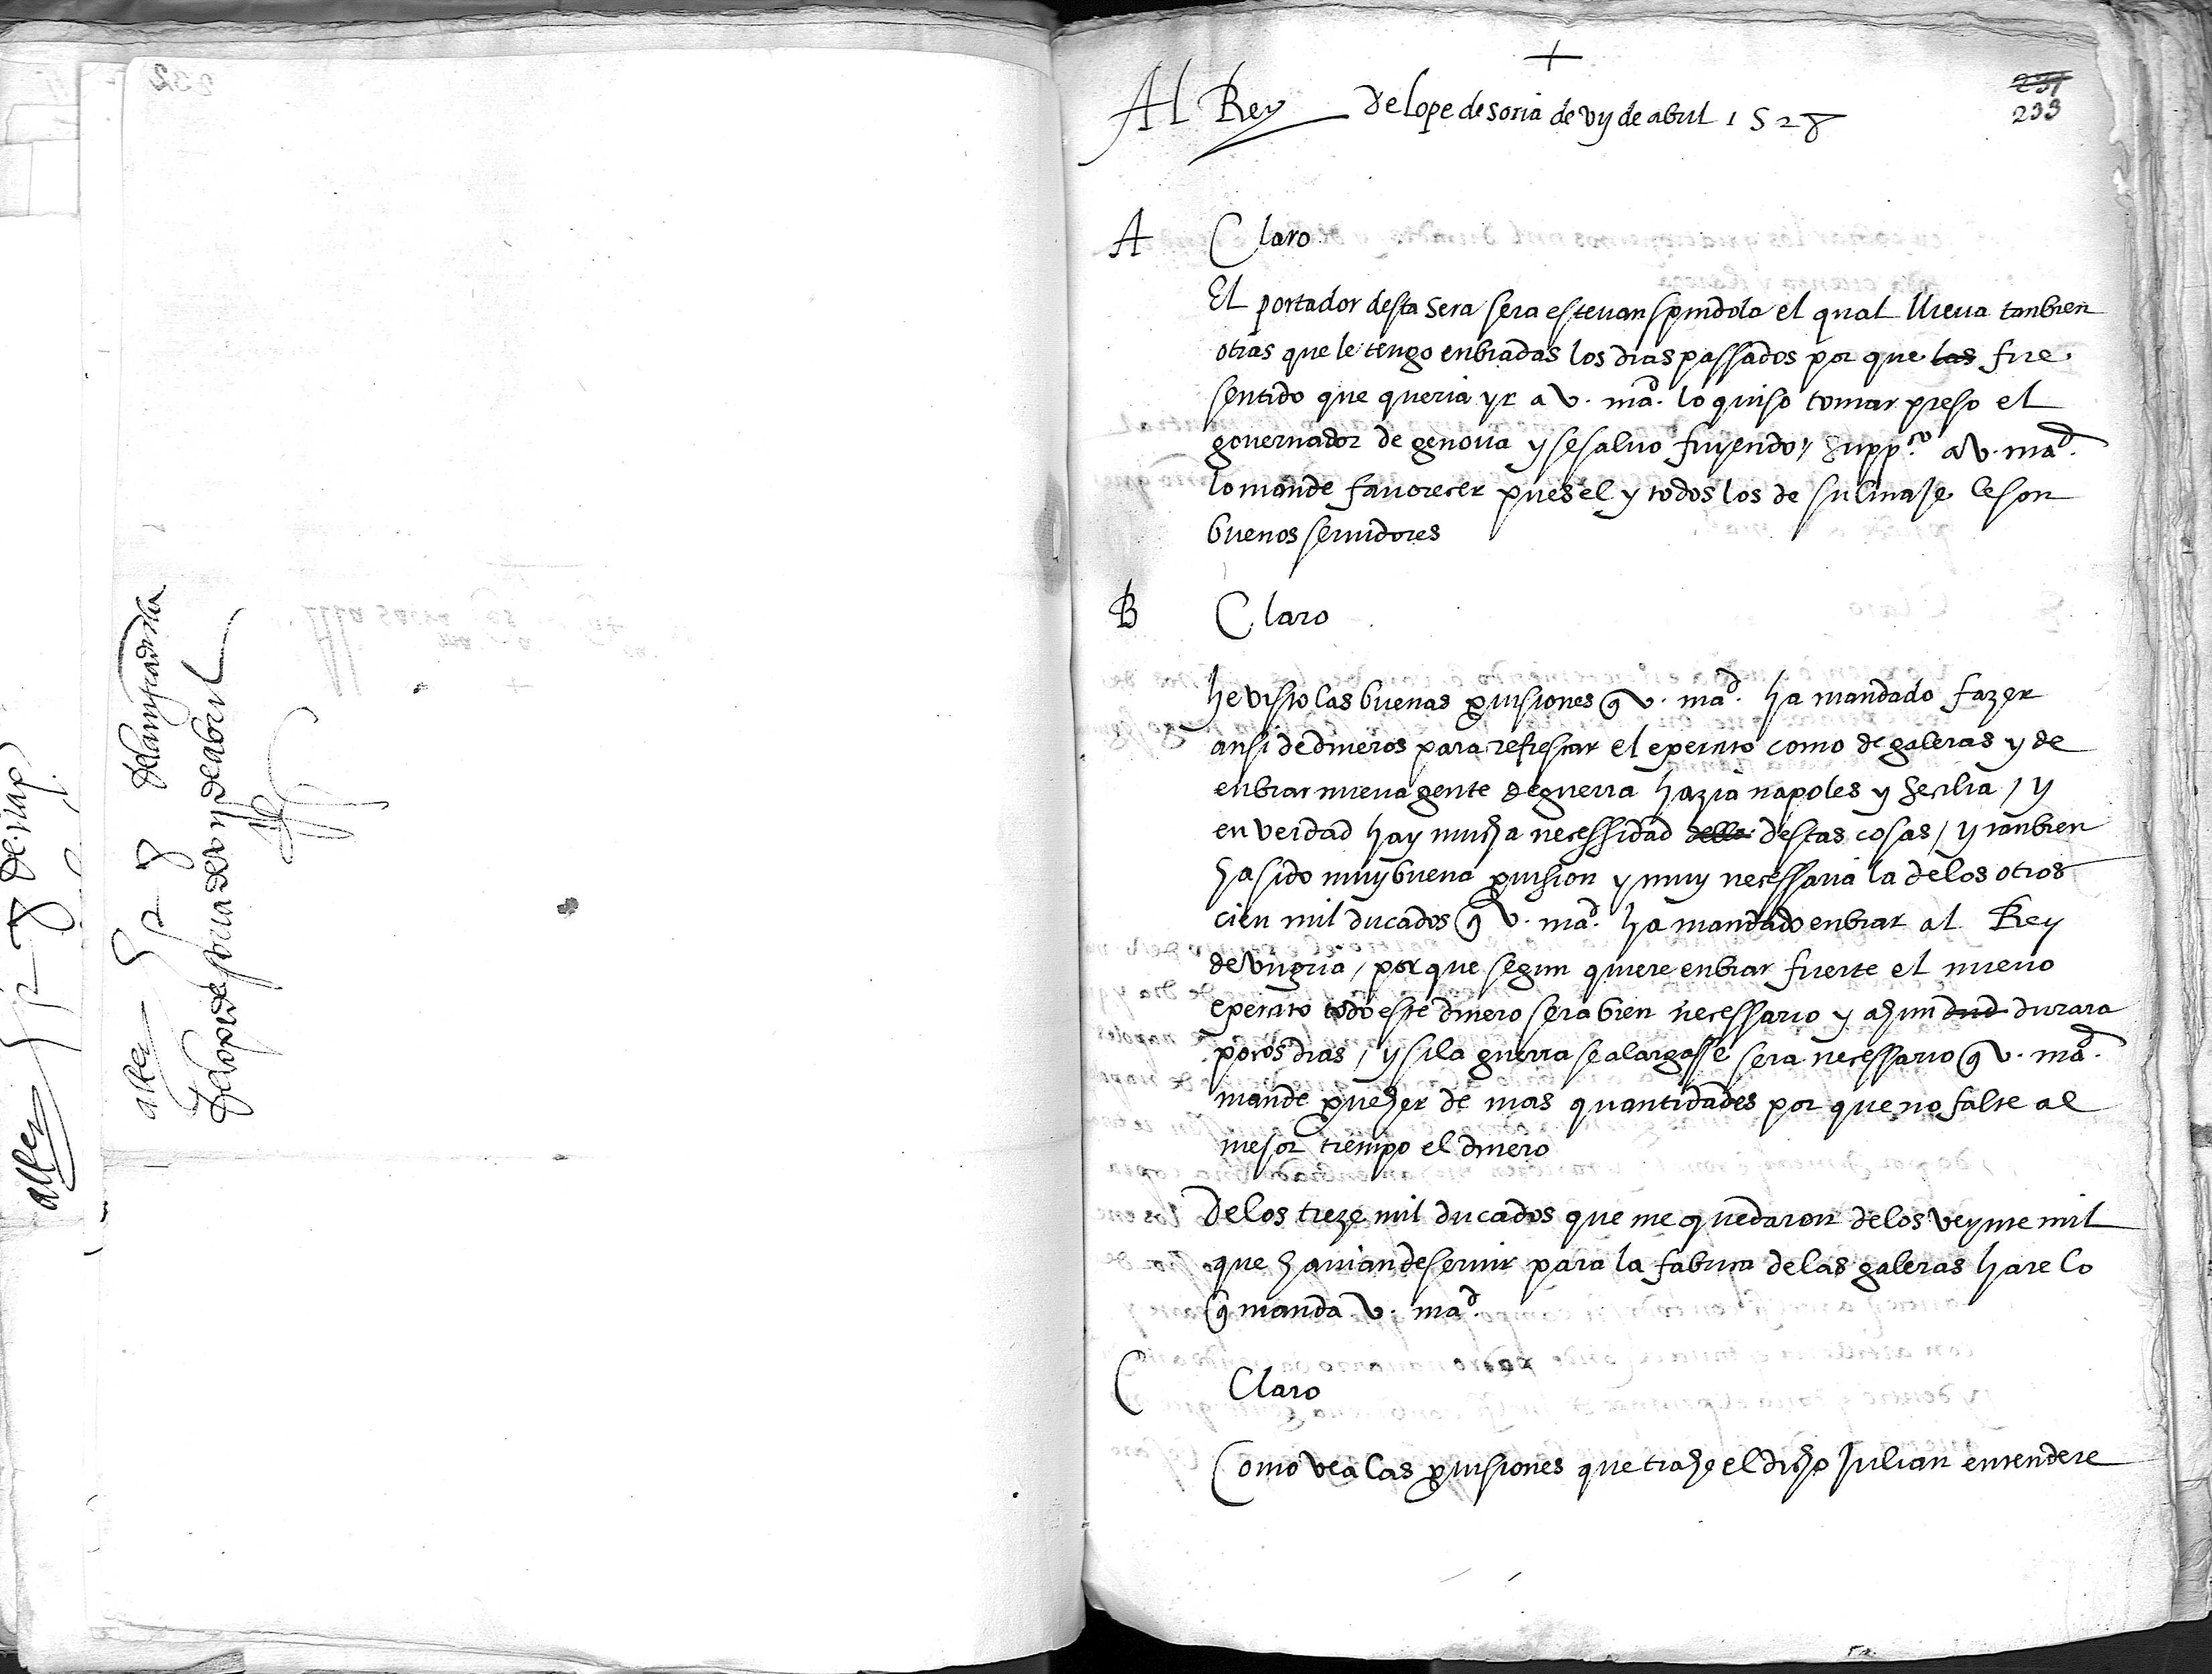 al Rey 1528 de la mirandula
De Lope de soria de vij de abril
+
Al Rey de lope de soria de vij de abril 1528
233
A Claro
El portador desta sera sera estevan spindola el qual lleva tanbien
otras que le tengo enbiadas los dias passados por que las fue
sentido que queria yr a v. mad. lo quiso tomar preso el
governador de genova y se salvo fuyendo / Suppco. a v. mad.
lo mande favorecer pues el y todos los de su linaje le son
buenos servidores
B Claro
he visto las buenas provisiones que v. mad. ha mandado fazer
ansi de dineros para refrescar el exercito como de galeras y de
enbiar nueva gente de guerra hazia napoles y Secilia / y
en verdad hay mucha necessidad della destas cosas / y tanbien
ha sido muy buena provision y muy necessaria la de los otros
cien mil ducados que v. mad. ha mandado enbiar al Rey
de vngria / porque segun quiere enbiar fuerte el nuevo
exercito todo este dinero sera bien necessario y ahun dud durara
pocos dias / y si la guerra se alargasse sera necessario que v. mad.
mande proveher de mas quantidades por que no falte al
mejor tiempo el dinero
De los treze mil ducados que me quedaron de los veynte mil
que havian de servir para la fabrica de las galeras hare lo
que manda v. mad.
C Claro
Como vea las provisiones que trahe el dicho Julian entendere